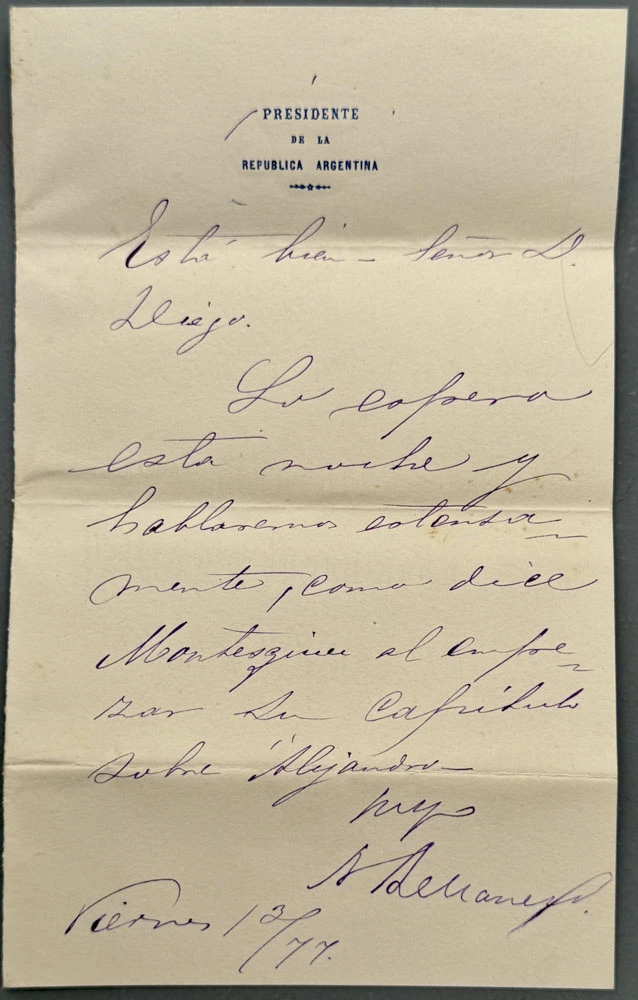 PRESIDENTE
DE LA
REPUBLICA ARGENTINA
Está bien – Señor D.
Diego.
Lo espero
esta noche y
hablaremos estensa-
mente, como dice
Montesquieu al empe-
zar su capítulo
sobre "Alejandro–
suyo
N Avellaneda.
Viernes 13/77.